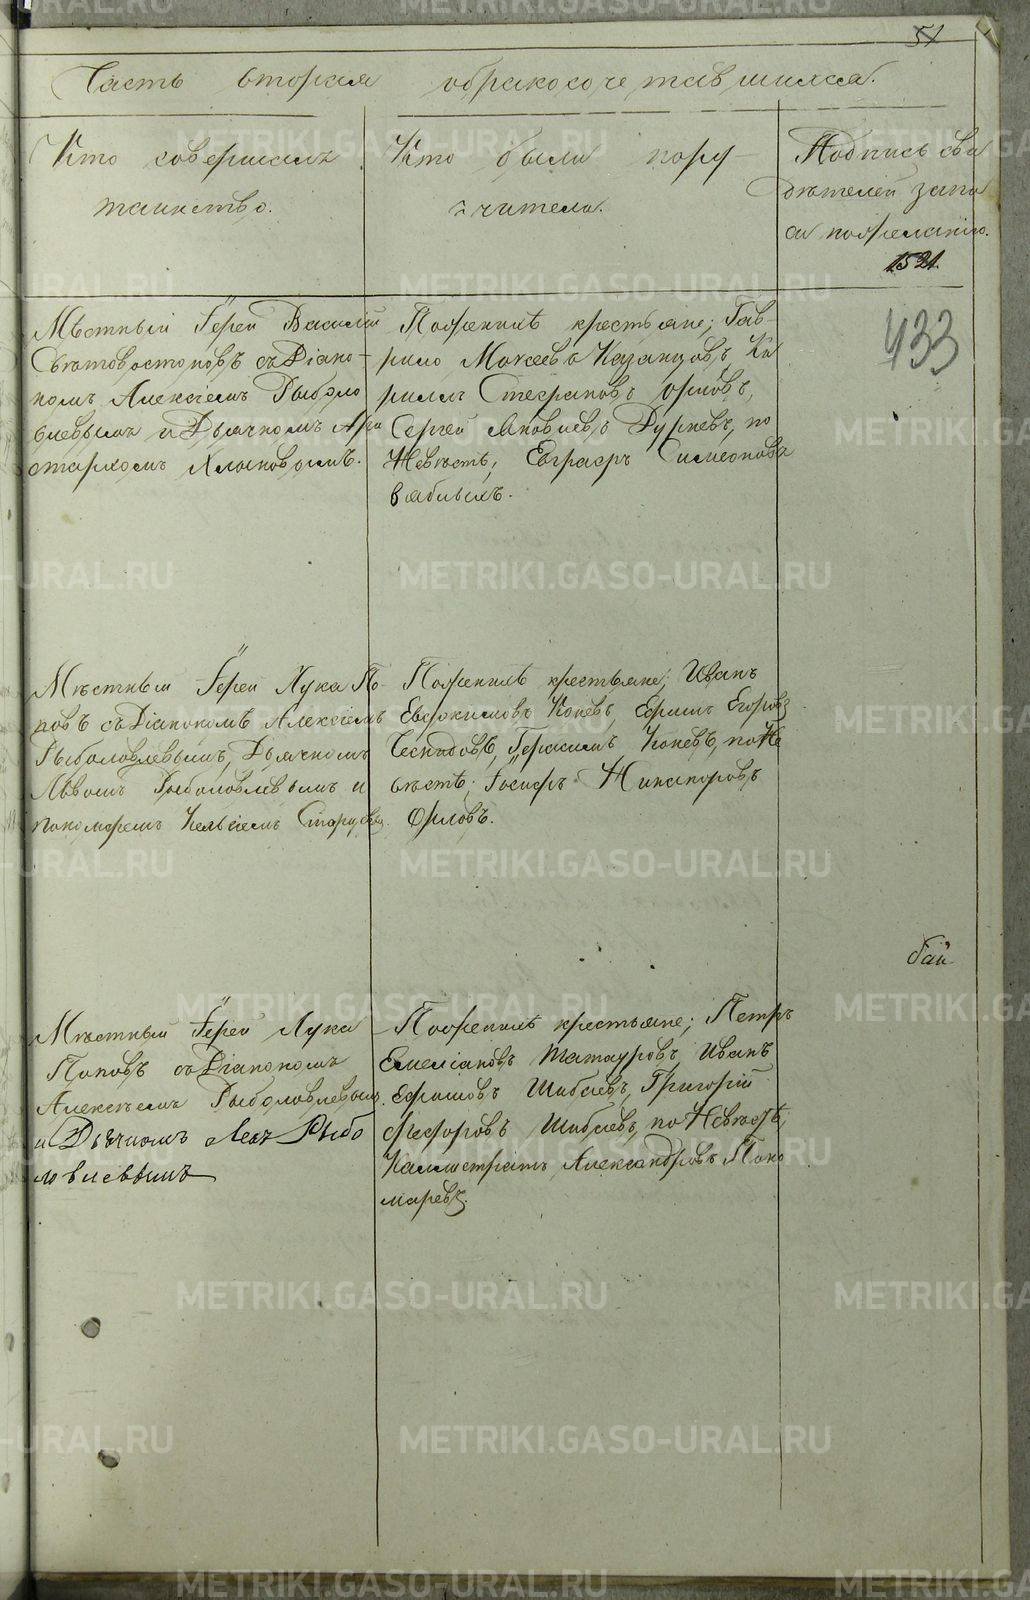 51
Часть вторая обракосочетавшихся.
Кто совершалъ
таинство.
Кто были пору-
чители.
Подпись сви
дѣтелей запи
си по желанію.
1521.
433
Мѣстный Іерей Василій
съ Діако-
номъ Алексіемъ Рыболо
влевымъ и Дьячкомъ Ари
стархомъ
По женихѣ крестьяне; Гав-
рило Моисеевъ Казанцовъ, Ки
риллъ Стефановъ Орловъ,
Сергей Яковлевъ Дурневъ, по
Невѣстѣ, Евграфъ Симеоновъ
Мѣстный Іерей Лука По-
повъ съ Діакономъ Алексіемъ
Рыболовлевымъ, Дьячкомъ
Львомъ Рыболовлевымъ и
пономаремъ
По женихѣ крестьяне; Иванъ
Евдокимовъ Коневъ, Ефимъ Егоровъ
Герасимъ Коневъ, по Не
вѣстѣ; Іосифъ Никаноровъ
Орловъ.
Мѣстный Іерей Лука
Поповъ съ Діакономъ
Алексѣемъ Рыболовлевымъ
и Дьячкомъ Рыбо
ловлевымъ
По женихѣ крестьяне; Петръ
Емеліановъ Татауровъ, Иванъ
Ефимовъ Шибаевъ, Григорій
Федоровъ Шибаевъ, по Невѣстѣ;
Каллистратъ Александровъ Поно
маревъ.
METRIKI.GASO-URAL.RU